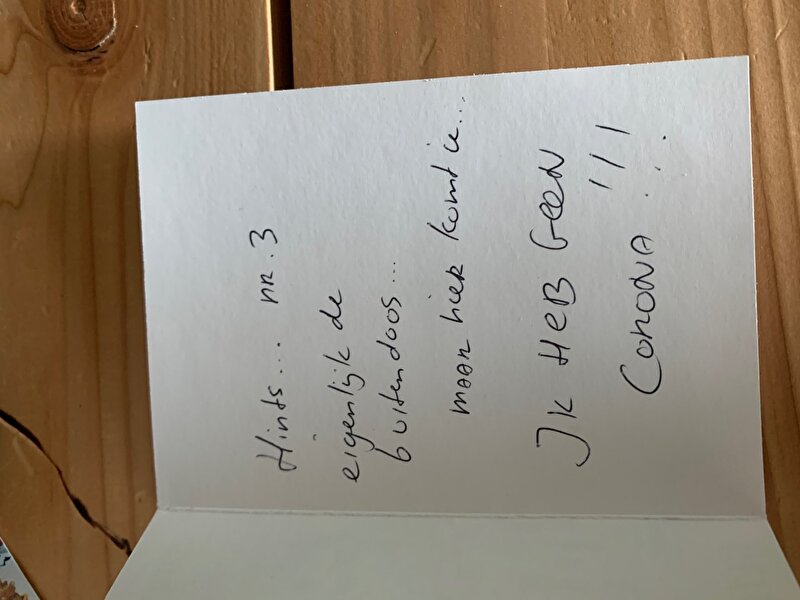 Hints... nr. 3
eigenlijk de
buitendoos...
maar hier komt ie...
Ik HeB Geen
CoronA !!!